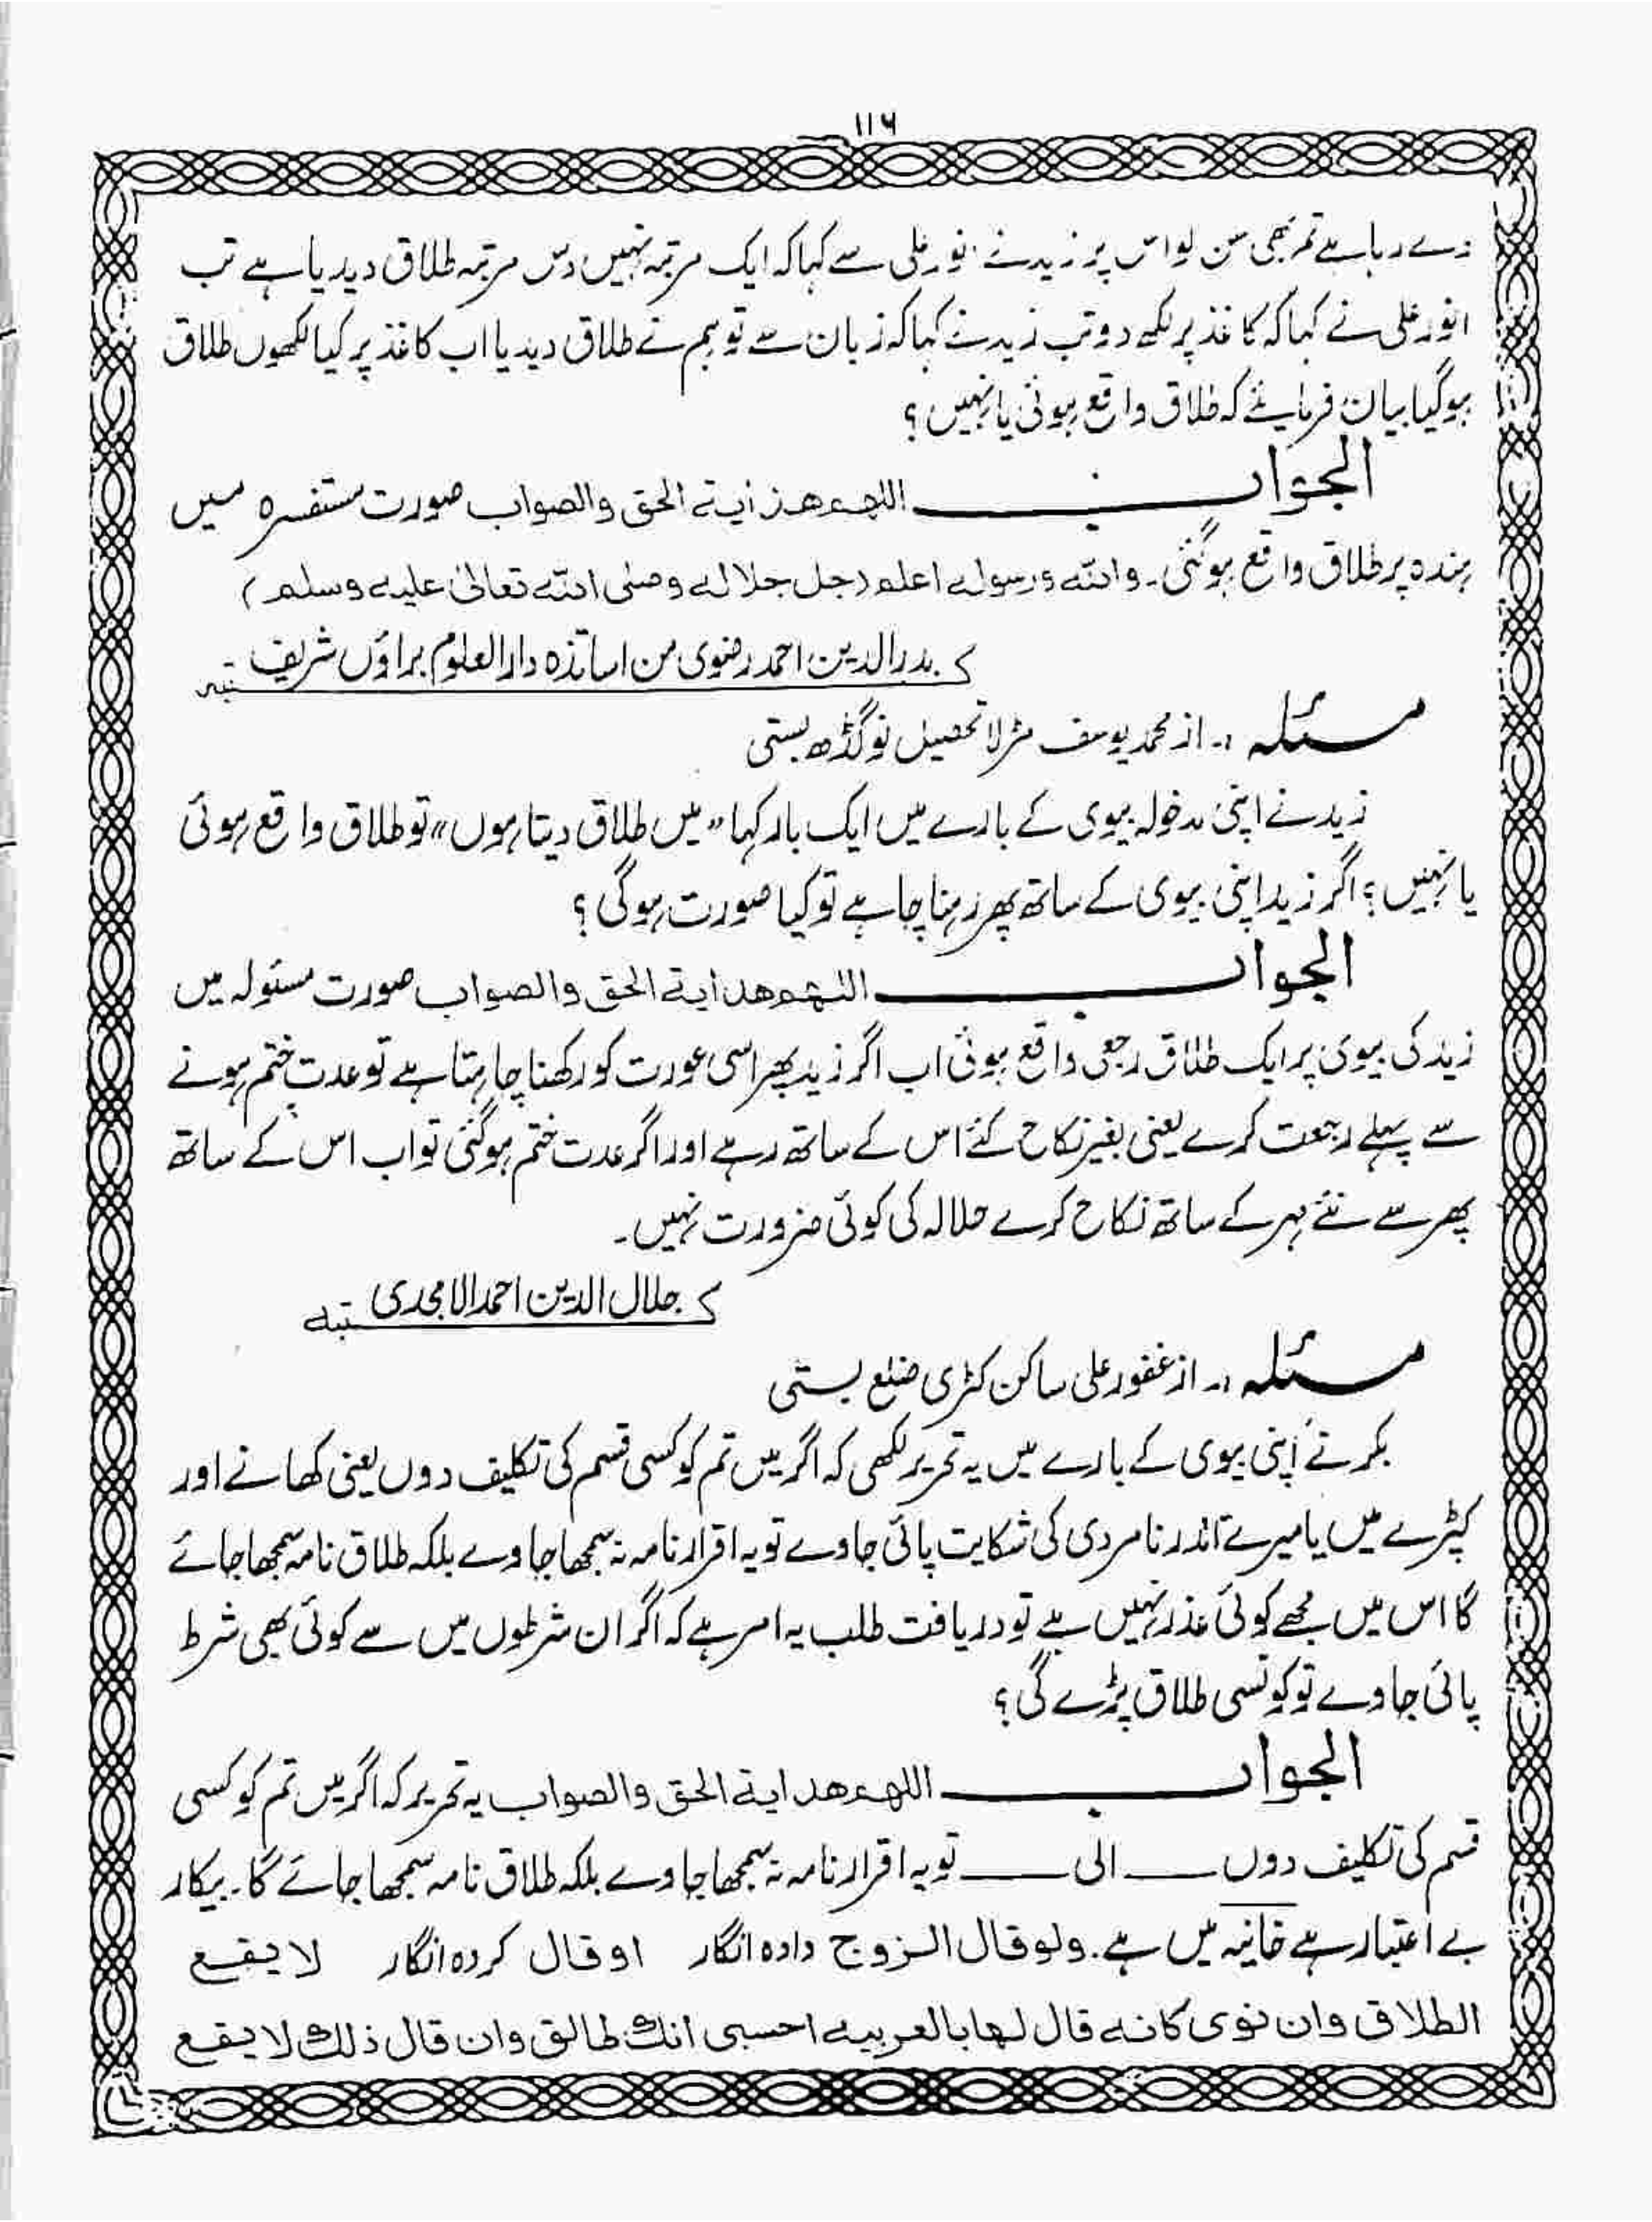 ۱۱۶
دے رہا ہے تم بھی سن لو اس پر زید نے انور علی سے کہا کہ ایک مرتبہ نہیں دس مرتبہ طلاق دیدیا ہے تب
انور علی نے کہا کہ کاغذ پر لکھ دو تب زید نے کہا کہ زبان سے تو ہم نے طلاق دیدیا اب کاغذ پر کیا لکھوں طلاق
ہوگیا بیان فرمایئے کہ طلاق واقع ہوئی یا نہیں ؟
الجواب ــــــ اللهم هداية الحق والصواب صورت مستفسرہ میں
ہندہ پر طلاق واقع ہوگئی۔ والله ورسوله اعلم (جل جلاله وصلی الله تعالیٰ علیه وسلم)
کتبہ بدر الدین احمد رضوی من اساتذہ دارالعلوم براؤں شریف
مسئلہ :۔ از محمد یوسف مڑلا تحصیل نوگڈھ بستی
زید نے اپنی مدخولہ بیوی کے بارے میں ایک بار کہا "میں طلاق دیتا ہوں" تو طلاق واقع ہوئی
یا نہیں ؟ اگر زید اپنی بیوی کے ساتھ پھر رہنا چاہے تو کیا صورت ہوگی ؟
الجواب ــــــ اللهم هداية الحق والصواب صورت مسئولہ میں
زید کی بیوی پر ایک طلاق رجعی واقع ہوئی اب اگر زید پھر اسی عورت کو رکھنا چاہتا ہے تو عدت ختم ہونے
سے پہلے رجعت کرے یعنی بغیر نکاح کئے اس کے ساتھ رہے اور اگر عدت ختم ہوگئی تو اب اس کے ساتھ
پھر سے نئے مہر کے ساتھ نکاح کرے حلالہ کی کوئی ضرورت نہیں۔
کتبہ جلال الدین احمد الامجدی
مسئلہ :۔ از غفور علی ساکن کٹری ضلع بستی
بکر نے اپنی بیوی کے بارے میں یہ تحریر لکھی کہ اگر میں تم کو کسی قسم کی تکلیف دوں یعنی کھانے اور
کپڑے میں یا میرے اندر نامردی کی شکایت پائی جاوے تو یہ اقرار نامہ نہ سمجھا جاوے بلکہ طلاق نامہ سمجھا جائے
گا اس میں مجھے کوئی عذر نہیں ہے تو دریافت طلب یہ امر ہے کہ اگر ان شرطوں میں سے کوئی بھی شرط
پائی جاوے تو کونسی طلاق پڑے گی ؟
الجواب ــــــ اللهم هداية الحق والصواب یہ تحریر کہ اگر میں تم کو کسی
قسم کی تکلیف دوں ــــــ الی ــــــ تو یہ اقرار نامہ نہ سمجھا جاوے بلکہ طلاق نامہ سمجھا جائے گا۔ بیکار
بے اعتبار ہے خانیہ میں ہے۔ ولو قال الزوج داده انگار او قال کرده انگار لا یقع
الطلاق وان نوی کانه قال لها بالعربیه احسبی انك طالق وان قال ذلك لا یقع